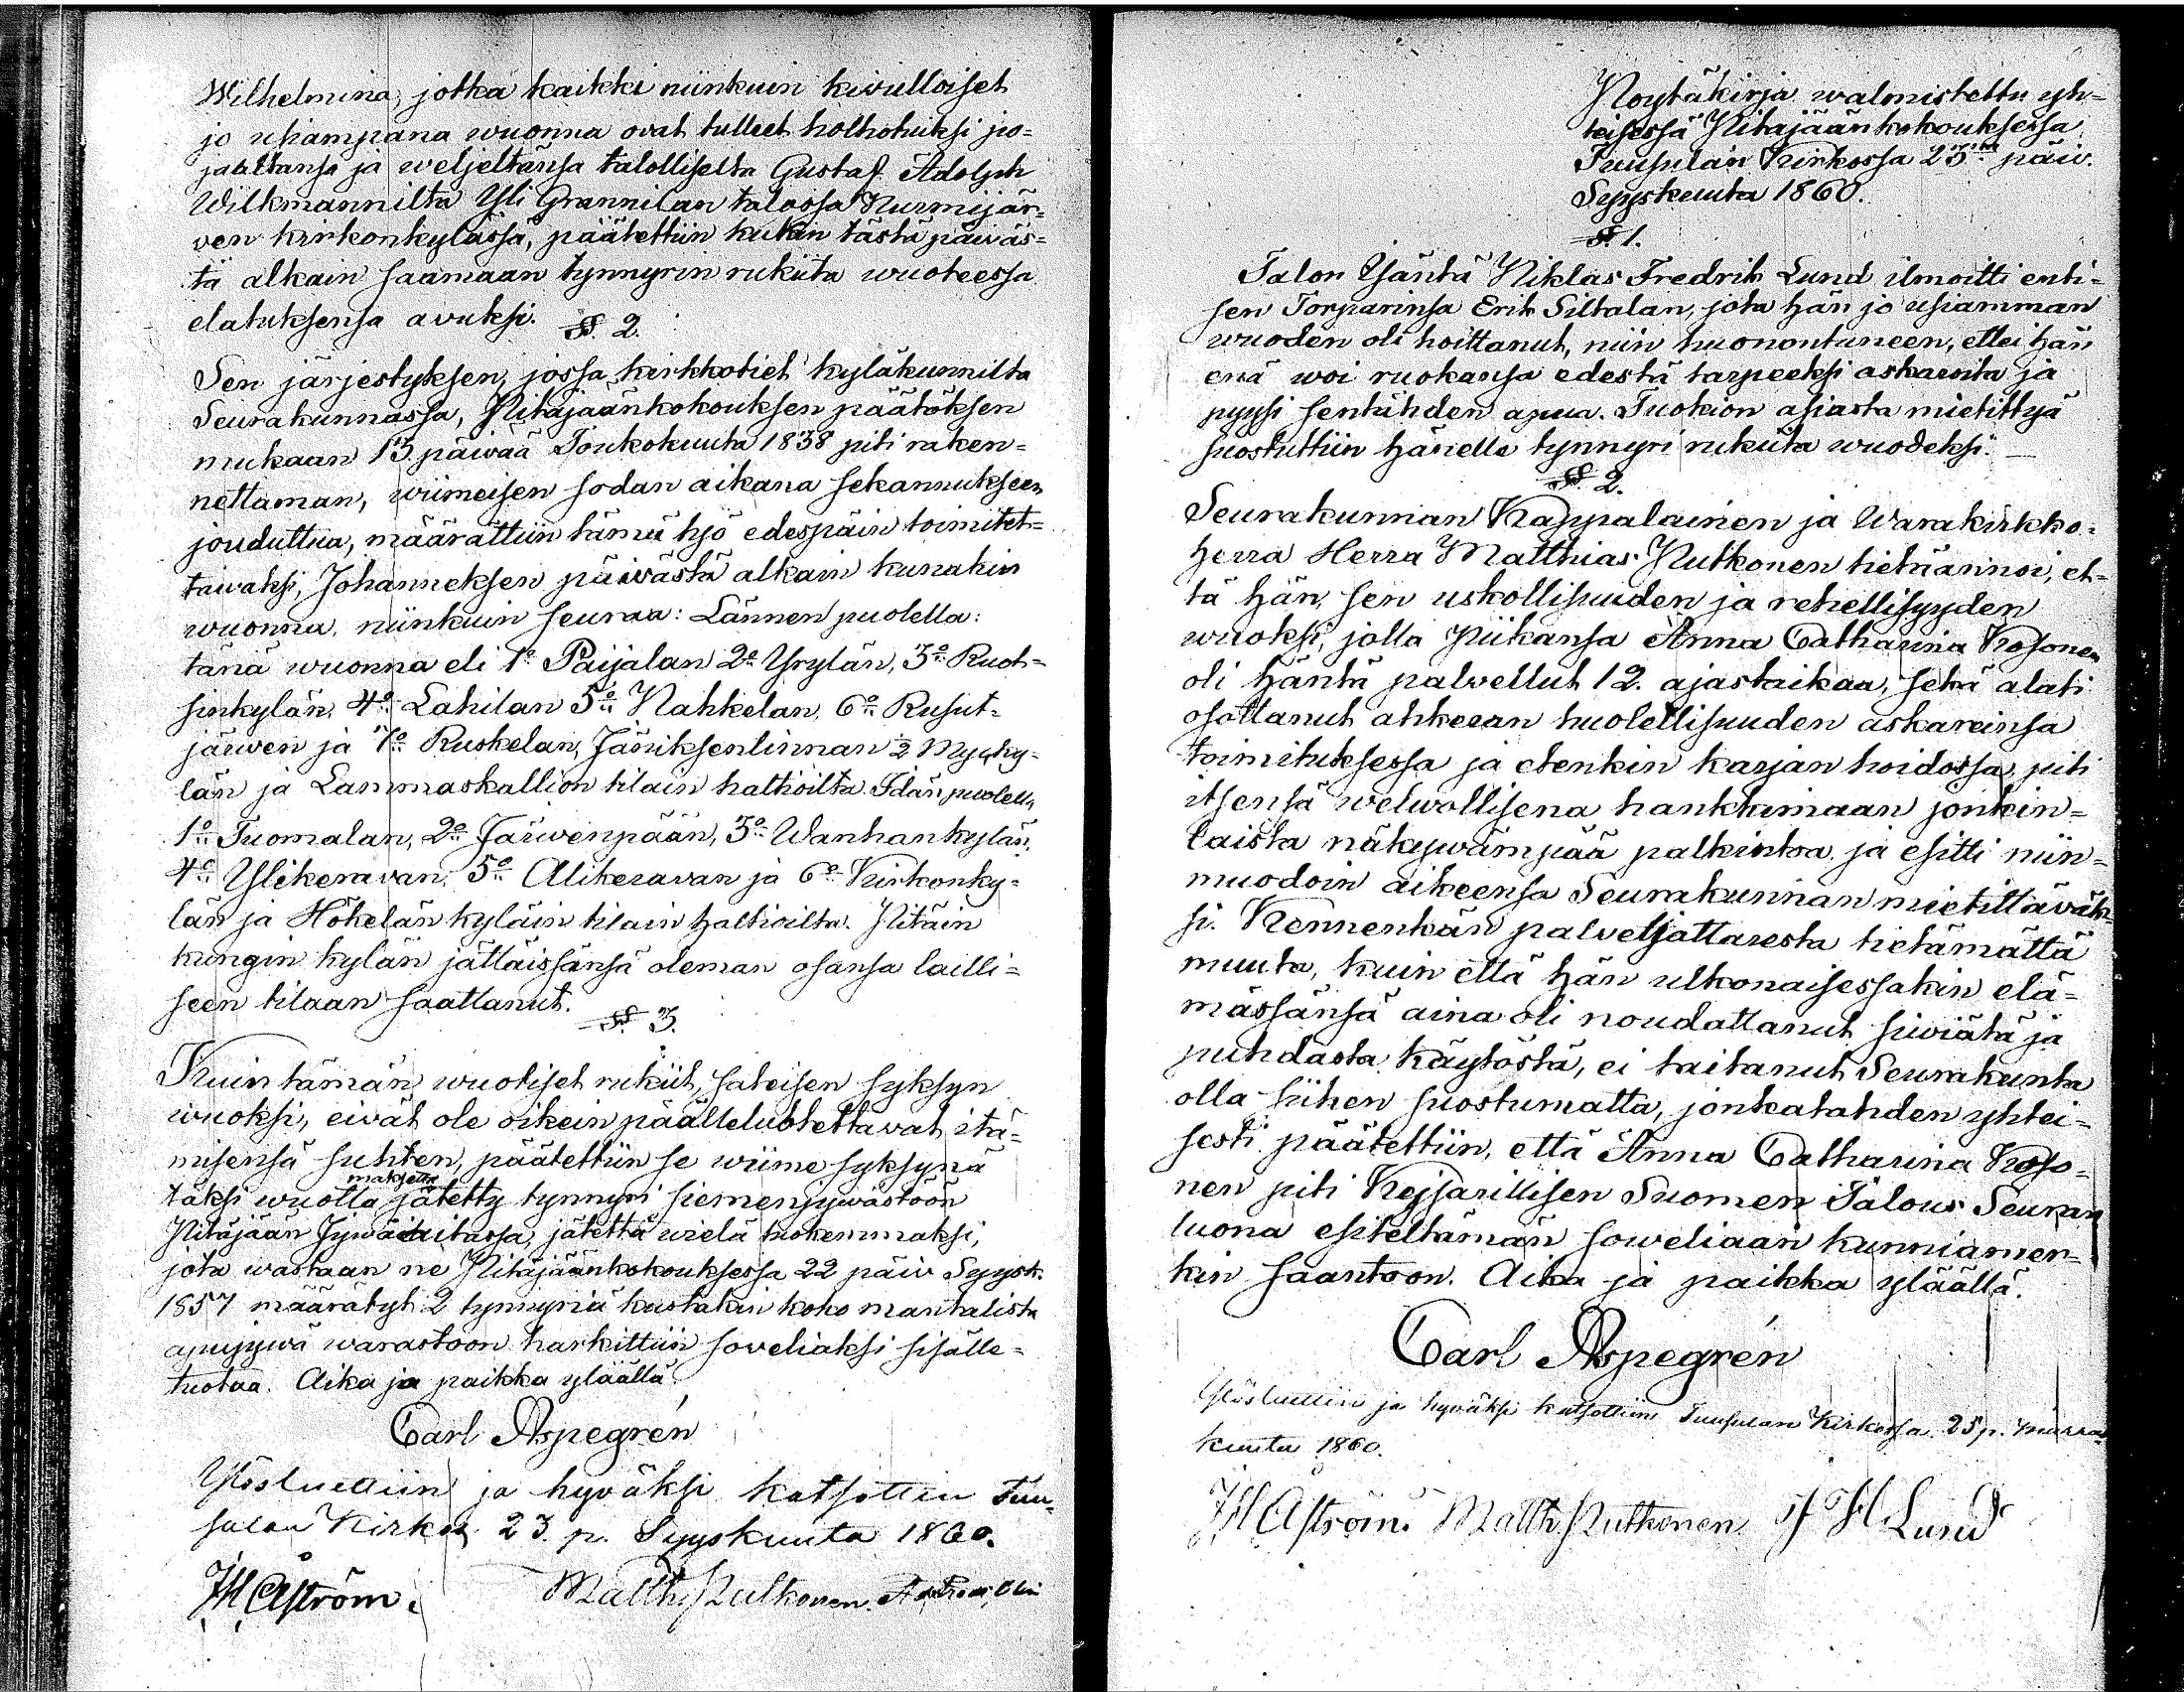 Wilhelmina, jotka kaikki niinkuin kivulloiset
jo usiampana wuonna ovat tulleet holhotuiksi po-
jaltansa ja weljeltänsä talolliselta Gustaf Adolph
Wilkmannilta Yli Grannilan talossa Nurmijär-
ven kirkonkylässä, päätettiin kukin tästä päiväs-
tä alkain saamaan tynnyrin rukiita wuoteessa
elatuksensa avuksi.
§. 2.
Sen järjestyksen, jossa kirkkotiet kyläkunnilta
Seurakunnassa, Pitäjäänkokouksen päätöksen
mukaan 13 päivää Toukokuuta 1838 piti raken-
nettaman, wiimeisen sodan aikana sekannukseen
jouduttua, määrättiin tämä työ edespäin toimitet-
tawaksi, Johanneksen päivästä alkain kunakin
wuonna, niinkuin seuraa: Lännen puolella:
tänä wuonna eli 1:o Paijalan 2:o Yrylän, 3:o Ruot-
sinkylän, 4:o Lahilan 5:o Nahkelan, 6:o Rusut-
järwen ja 7:o Ruskelan, Jäniksenlinnan 2 Myyky-
län ja Lammaskallion tilain haltioilta. Idän puolella
1:o Tuomalan, 2:o Järwenpään, 3:o Wanhankylän,
4:o Ylikeravan, 5:o Alikeravan ja 6:o Kirkonky-
län ja Hökelän kyläin tilain haltioilta. Pitäin
kungin kylän jättäissänsä oleman osansa lailli-
seen tilaan saattanut.
§. 3.
Kuin tämän wuotiset rukiit, sateisen syksyn
wuoksi, eivät ole oikein päälleluotettavat itä-
misensä suhten, päätettiin se wiime syksynä
maksetta
täksi wuotta jätetty tynnyri siemenjywästöön
Pitäjään Jywäaitassa, jätettä wielä tuokemmaksi,
jota wastaan ne Pitäjäänkokouksessa 22 päiv Syysk.
1857 määrätyt 2 tynnyriä kustakin koko mantalista
apujywä warastoon harkittiin soveliaksi sisälle-
tuotaa. Aika ja paikka yläällä.
Carl Aspegrén
Ylösluettiin ja hyväksi katsottiin Tuu-
sulan Kirkos 23 p. Syyskuuta 1860.
JH Åström. Matth Putkonen.
Pöytäkirja walmistettu yh-
teisessä Pitäjäänkokouksessa
Tuusulan Kirkossa 23:na päiv.
Syyskuuta 1860.
§. 1.
Talon Isäntä Niklas Fredrik Lund ilmoitti enti-
sen Torparinsa Erik Siltalan, jota hän jo usiamman
wuoden oli hoittanut, niin huonontuneen, ettei hän
enä woi ruokansa edestä tarpeeksi askaroita ja
pyysi sentähden apua. Tuokion asiasta mietittyä
suostuttiin hänelle tynnyri rukiita wuodeksi. —
§. 2.
Seurakunnan Kappalainen ja Warakirkko-
herra Herra Matthias Putkonen tietäännoi, et-
tä hän, sen uskollisuuden ja rehellisyyden
wuoksi, jolla piikansa Anna Catharina Kosonen
oli häntä palvellut 12. ajastaikaa, sekä alati
osottanut ahkeran huolellisuuden askareinsa
toimituksessa ja etenkin karjan hoidossa, piti
itsensä welwollisena hankkimaan jonkin-
laista näkywämpää palkintoa ja esitti niin-
muodoin aikeensa Seurakunnan mietittäväk-
si. Kennenkän palveljattaresta tietämättä
muuta, kuin että hän ulkonaisessakin elä-
mässänsä aina oli noudattanut siwiätä ja
puhdasta käytöstä, ei taitanut Seurakunta
olla siihen suostumatta, jonkatahden yhtei-
sesti päätettiin, että Anna Catharina Koso-
nen piti Kejsarillisen Suomen Talous Seuran
luona esiteltämän soweliaan kunniamer-
kin saantoon. Aika ja paikka yläällä.
Carl Aspegrén
Ylösluettiin ja hyväksi katsottiin Tuusulan Kirkossa 25 p. Marras
kuuta 1860.
JH Åström. Matth Putkonen Lund